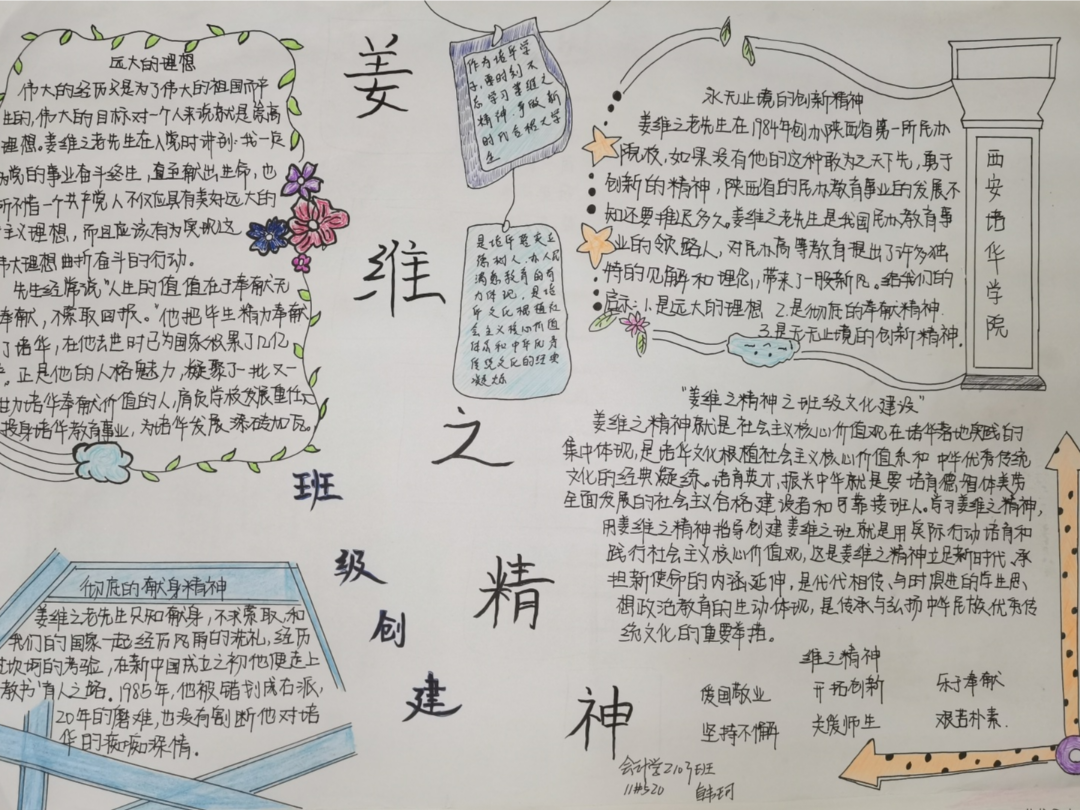 远大的理想
伟大的经历又是为了伟大的祖国而产
生的,伟大的目标对一个人来说就是崇高
理想。姜维之老先生在入党时讲到:我一定
为党的事业奋斗终生,直至献出生命,也
所不惜一个共产党人不仅应具有美好远大的
主义理想,而且应该有为实现这
伟大理想曲折奋斗的行动。
先生经常说"人生的值值在于奉献无
奉献,不索取回报。"他把毕生精力奉献
了培华,在他去世时已为国家积累了几亿
正是他的人格魅力,凝聚了一批又一
培华奉献价值的人,肩负学校发展重任
投身培华教育事业,为培华发展添砖加瓦。
姜
维
之
精
神
班
级
创
建
作为培华学
子,要时刻不
忘学习姜维之
精神,争做新
时代合格大学
生
是培华要夫立
德树人、办人民
满意教育的有
力伴说,是培
华文化根植社
会主义核心价值
体系和中华民秀
传统文化的经典
凝炼
永无止境的创新精神
姜维之老先生在1984年创办陕西省第一所民办
院校,如果没有他的这种敢为之天下先,勇于
创新的精神,陕西省的民办教育事业的发展不
知还要推迟多久。姜维之老先生是我国民办教育事
业的领路人,对民办高等教育提出了许多独
特的见解和理念,带来了一股新风。给我们的
启示:1.是远大的理想 2.是彻底的奉献精神
3.是无无止境的创新精神.
西安培华学院
"姜维之精神之班级文化建设"
姜维之精神就是社会主义核心价值观在培华落地实践的
集中体现,是培华文化根植社会主义核心价值系和中华优秀传统
文化的经典凝练。培育英才,振兴中华就是要培育德智体美劳
全面发展的社会主义合格建设者和可靠接班人。学习姜维之精神,
用姜维之精神指导创建姜维之班就是用实际行动培育和
践行社会主义核心价值观,这是姜维之精神立足新时代、承
担新使命的内涵延伸,是代代相传、与时俱进的库生思
想政治教育的生动体现,是传承与弘扬中华民族优秀传
统文化的重要举措。
维之精神
爱国敬业 开拓创新 乐于奉献
坚持不懈 关爱师生 艰苦朴素.
彻底的献身精神
姜维之老先生只知献身,不求索取,和
我们的国家一起经历风雨的洗礼,经历
坎坷的考验,在新中国成立之初他便走上
教书育人之路。1985年,他被错划成右派,
20年的磨难,也没有割断他对培
华的痴痴深情。
会计学2103班
11#520